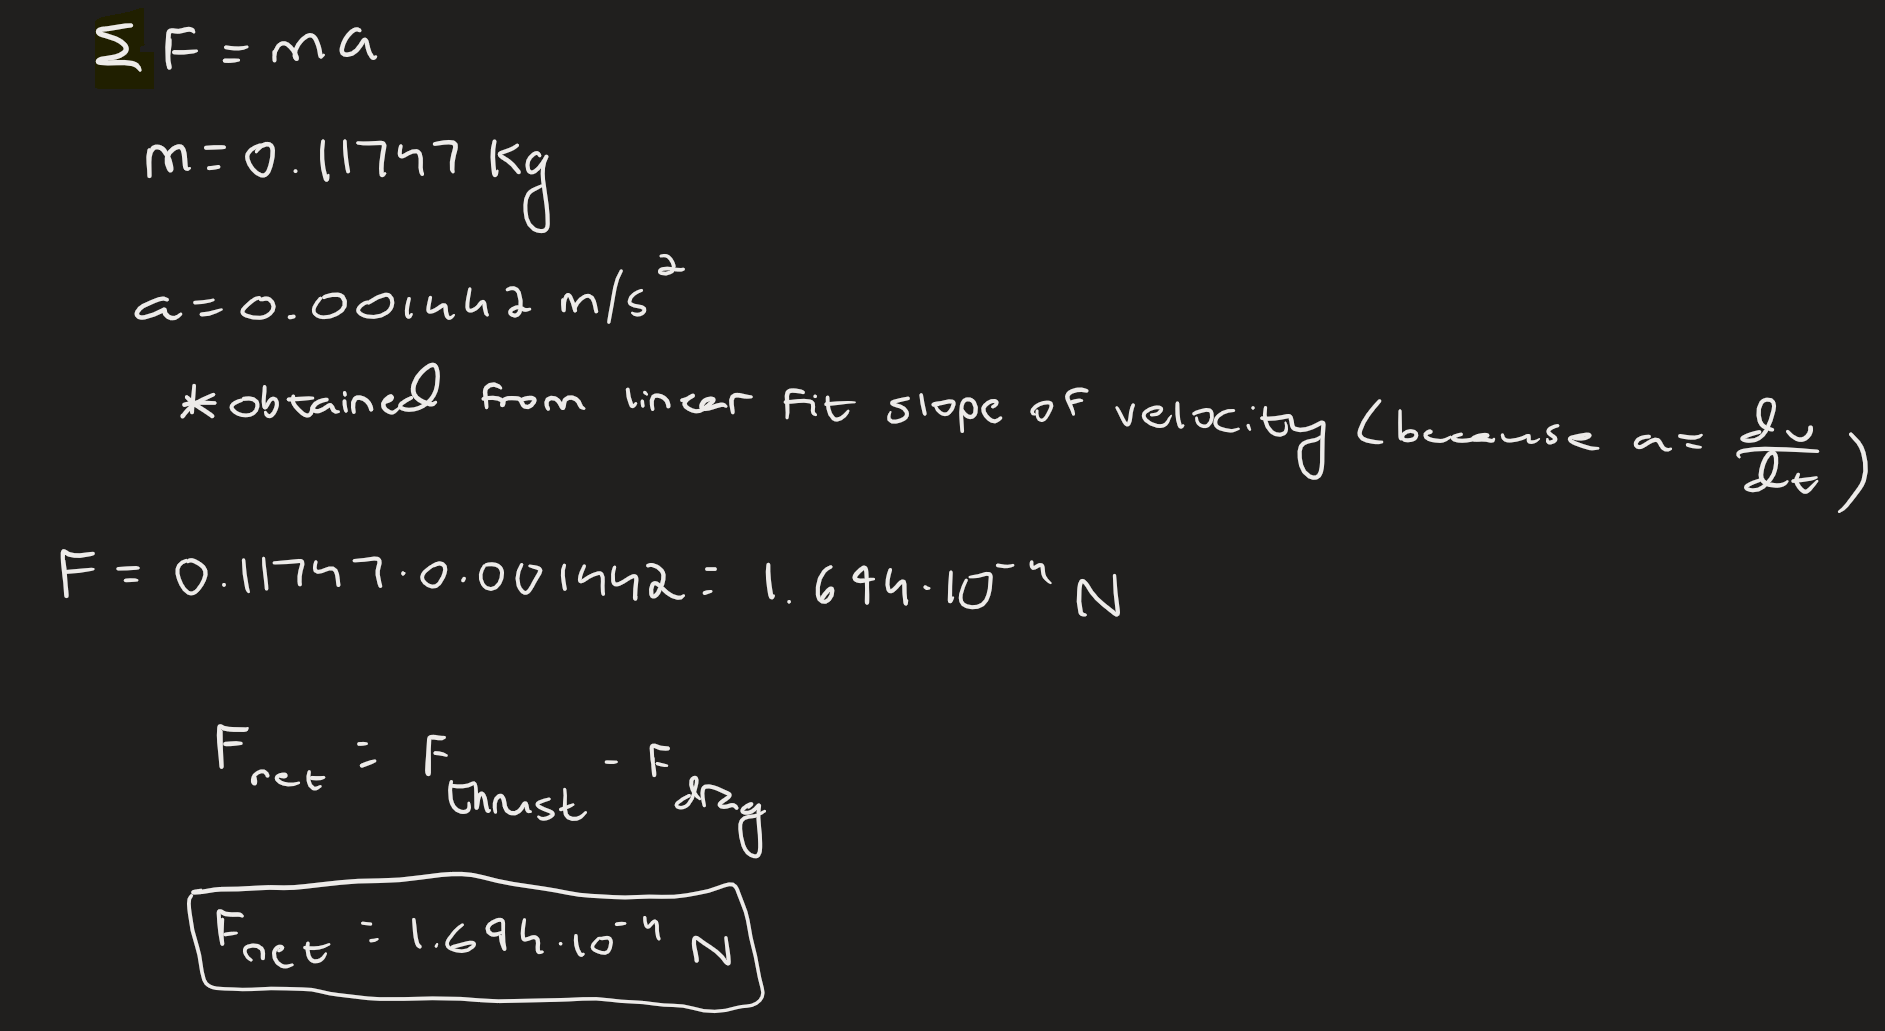 Σ F = ma
m = 0.11747 kg
a = 0.001442 m/s²
*obtained from linear fit slope of velocity (because a = dv/dt)
F = 0.11747 · 0.001442 = 1.694 · 10⁻⁴ N
F net = F thrust - F drag
F net = 1.694 · 10⁻⁴ N